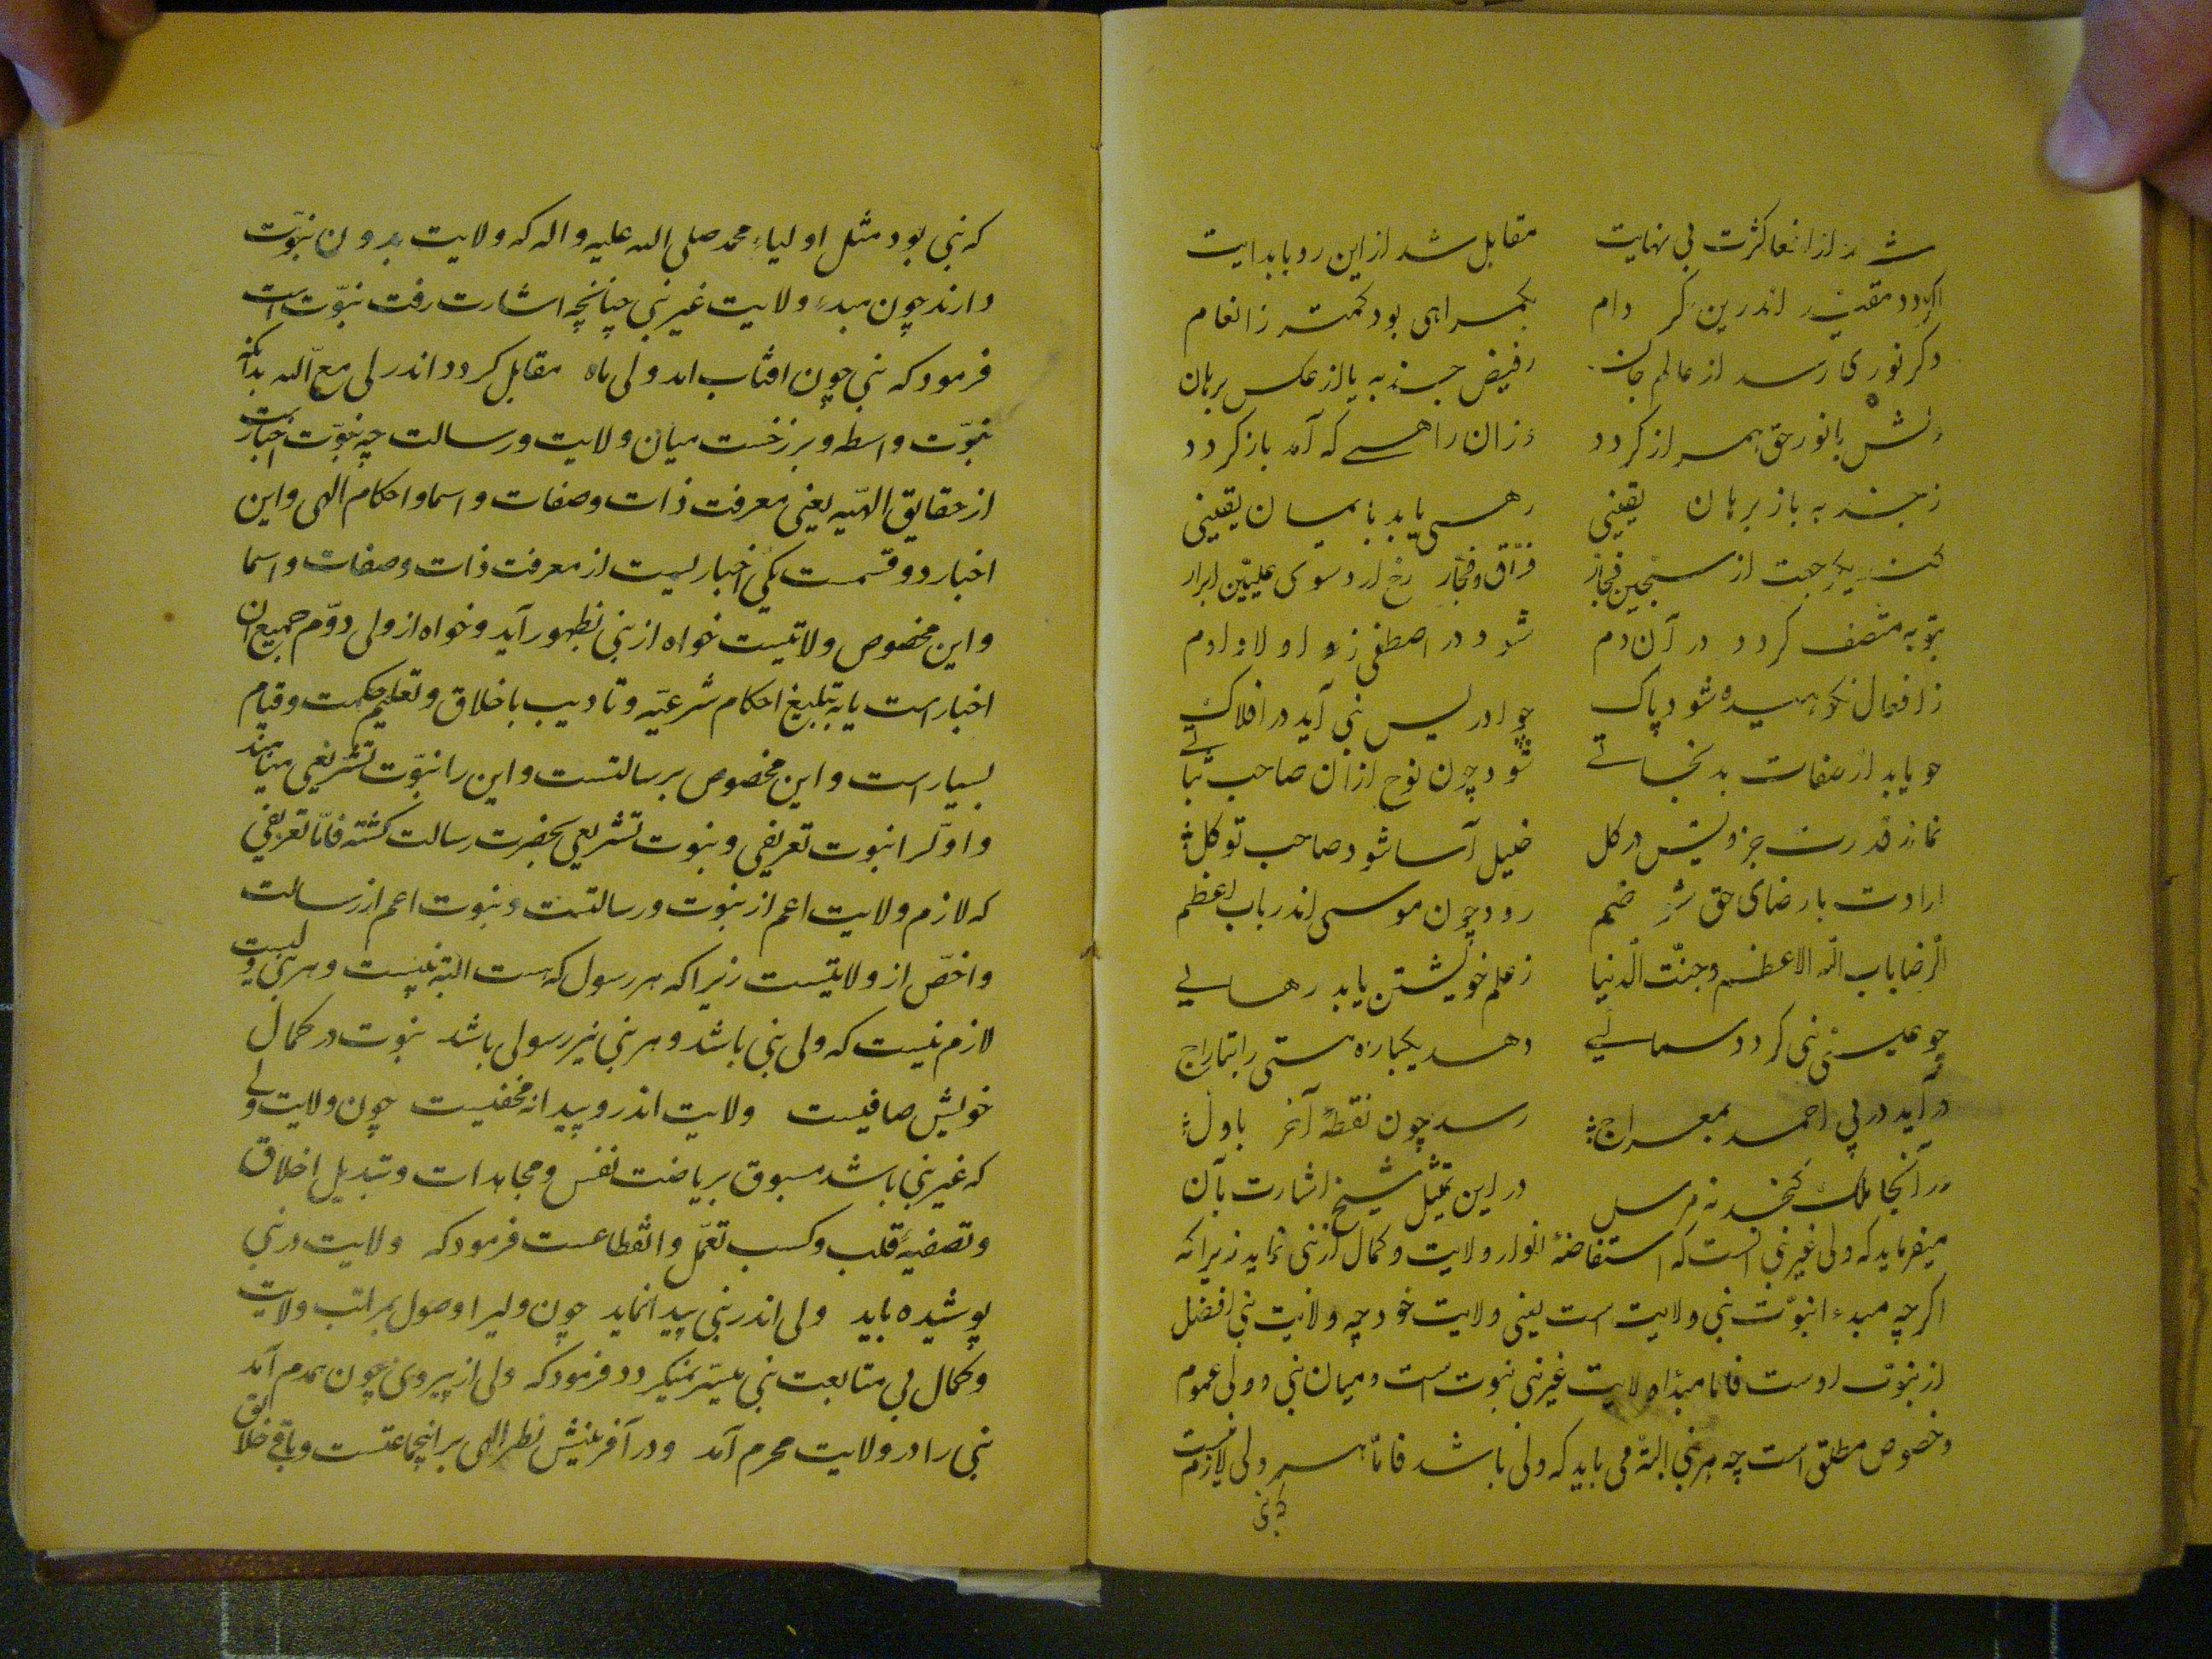 شد از افعال کثرت بی نهایت مقابل شد از این رو با بدایت
اگر گردد مقید اندرین دام بگمراهی بود کمتر ز انعام
وگر نوری رسد از عالم جان ز فیض جذبه یا از عکس برهان
دلش با نور حق همراز گردد وزان راهی که آمد باز گردد
ز جذبه یا ز برهان یقینی رهی یابد بایمان یقینی
کند یک رجعت از سجین فجار رخ ارد سوی علیین ابرار
بتوبه متصف گردد در آن دم شود در اصطفی ز اولاد ادم
ز افعال نکوهیده شود پاک چو ادریس نبی آید در افلاک
چو یابد از صفات بد نجاتی شود چون نوح از ان صاحب ثباتی
نماند قدرت جزویش در کل خلیل آسا شود صاحب توکل
ارادت با رضای حق شود ضم رود چون موسی اندر باب اعظم
الرضا باب الله الاعظم وجنت الدنیا ز علم خویشتن یابد رهایی
چو عیسی نبی گردد سمایی دهد یکباره هستی را بتاراج
در آید در پی احمد بمعراج رسد چون نقطه آخر باول
در آنجا ملک گنجد نه مرسل در این تمثیل شیخ اشارت بآن
میفرماید که ولی غیر نبی انست که استفاضه انوار ولایت و کمال از نبی نماید زیرا که
اکر چه مبدء نبوت نبی ولایت است یعنی ولایت خود چه ولایت نبی افضل
از نبوت اوست فاما مبدا ولایت غیر نبی نبوت است و میان نبی و ولی عموم
و خصوص مطلق است چه هر نبی البته می باید که ولی باشد فاما هر ولی لازم نیست
که نبی
که نبی بود مثل اولیاء محمد صلی الله علیه واله که ولایت بدون نبوّت
دارند چون مبدء ولایت غیر نبی چنانچه اشارت رفت نبوّت است
فرمود که نبی چون افتاب امد ولی ماه مقابل کردد اندر لی مع الله بدانکه
نبوّت واسطه و برزخست میان ولایت و رسالت چه نبوّت اخبارست
از حقایق الهیّه یعنی معرفت ذات و صفات و اسما و احکام الهی و این
اخبار دو قسمست یکی اخبارلیست از معرفت ذات و صفات و اسما
و این مخصوص ولایتست خواه از نبی بظهور آید و خواه از ولی دوّم جمیع ان
اخبار است یا به تبلیغ احکام شرعیّه و تادیب باخلاق و تعلیم حکمت و قیام
بسیار است و این مخصوص برسالتست و این را نبوّت تشریعی مینامند
و اوّلرا نبوت تعریفی و نبوت تشریعی بحضرت رسالت کشته فامّا تعریفی
که لازم ولایت اعم از نبوت و رسالتست و نبوت اعم از رسالت
و اخصّ از ولایتست زیرا که هر رسول که هست البته نبیست و هر نبی ولیست و
لازم نیست که ولی نبی باشد و هر نبی نیز رسولی باشد نبوت در کمال
خویش صافیست ولایت اندرو پیدا نه مخفیست چون ولایت ولی
که غیر نبی باشد مسبوق بریاضت نفس و مجاهدات و تبدیل اخلاق
و تصفیهٔ قلب و کسب تعمّل و انقطاعست فرمود که ولایت در نبی
پوشیده باید ولی اندر نبی پیدا نماید چون ولیرا وصول بمراتب ولایت
و کمال بی متابعت نبی میسّر نمیکردد فرمود که ولی از پیروی چون همدم آمد
نبی را در ولایت محرم آمد و در آفرینش نظر الهی بر اینجماعتست و باقی خلایق